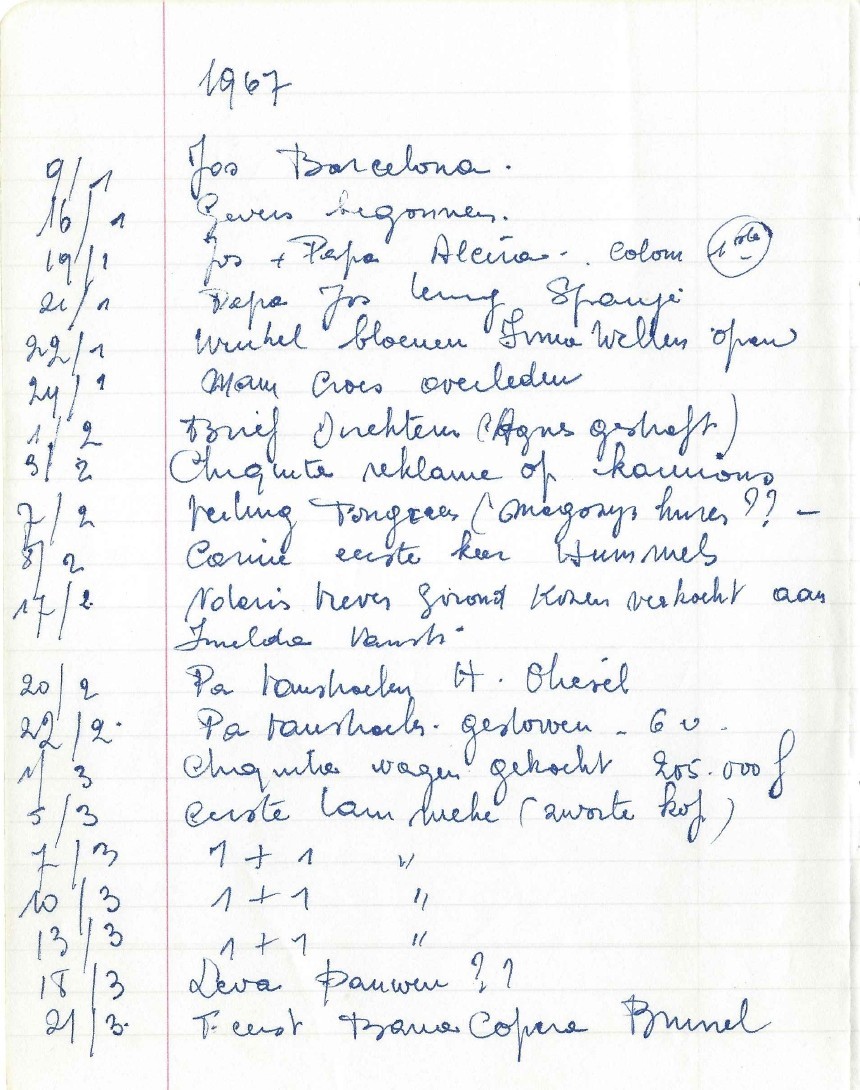 1967
9/1 Jos Barcelona.
16/1 Gevers begonnen.
19/1 Jos + Papa Alcira - . Colom 1ste
21/1 Papa Jos terug Spanje
22/1 Winkel bloemen Irma Wellens open
24/1 Mam Croes overleden
1/2 Brief Direkteur (Agnes gestraft)
3/2 Chiquita reklame op kamions
7/2 Veiling Tongeren ( huren ?? -
8/2 Corine eerste keer Hummels
17/2 Notaris Grond Kozen verkocht aan
Imelda
20/2 Pa H. Oliesel
22/2. Pa gestorven - 6 u.
1/3 Chiquita wagen gekocht 205.000 f
5/3 eerste lam (zwarte kop)
7/3 1 + 1 "
10/3 1 + 1 "
13/3 1 + 1 "
18/3 Deva pauwen ??
21/3. Feest Bana Copera Brussel